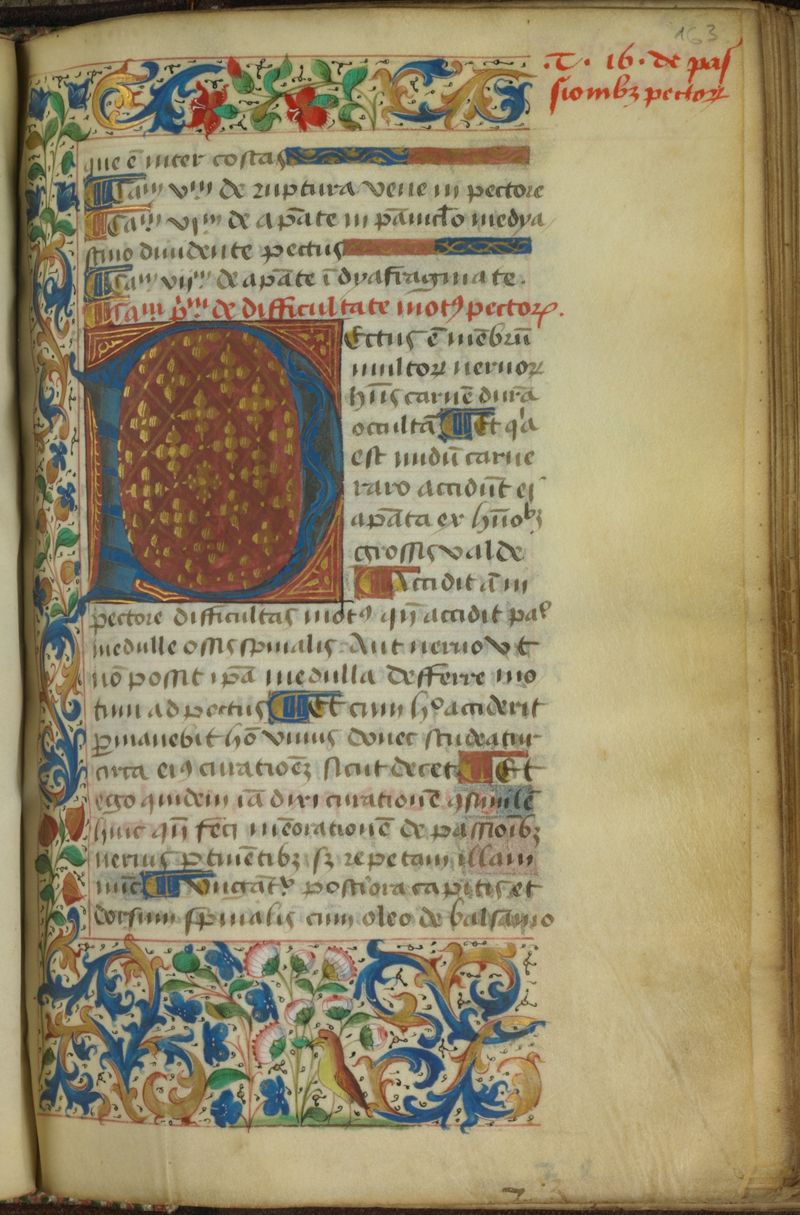 163
.T. 16. de pas
sionibꝫ pectoꝝ
que ē inter costas
Cam vm de ruptura vene in pectore
Cam vjm de apāte in pāniclo medya
stino diuidente pectus
Cam vijm de apāte ī dyafragmate.
Cam pm de difficultate motꝰ pectoꝝ.
PEctus ē mēbrū
multoꝝ neruoꝝ
hn̄s carnē durā
occultā Et qa
est nudū carne
raro accidūt ei
apāta ex hūobꝫ
grossis valde
Accidit ā in
pectore difficultas motꝰ qn̄ accidit
medulle ossis spinalis. Aut neruo vt
nō possit ipā medulla defferre mo
tum ad pectus Et cum hᵒ acciderit
ꝑmanebit hō viuus donec studeatur
circa eiꝰ curationeꝫ sicut decet Et
ego quidem iā dixi curationē ꝯsimilē
huic qn̄ feci mēorationē de passioībꝫ
neruis ꝑtinētibꝫ sꝫ repetam illam
nunc Vngāt posteriora capitis et
dorsum spinalis cum oleo de balsamo